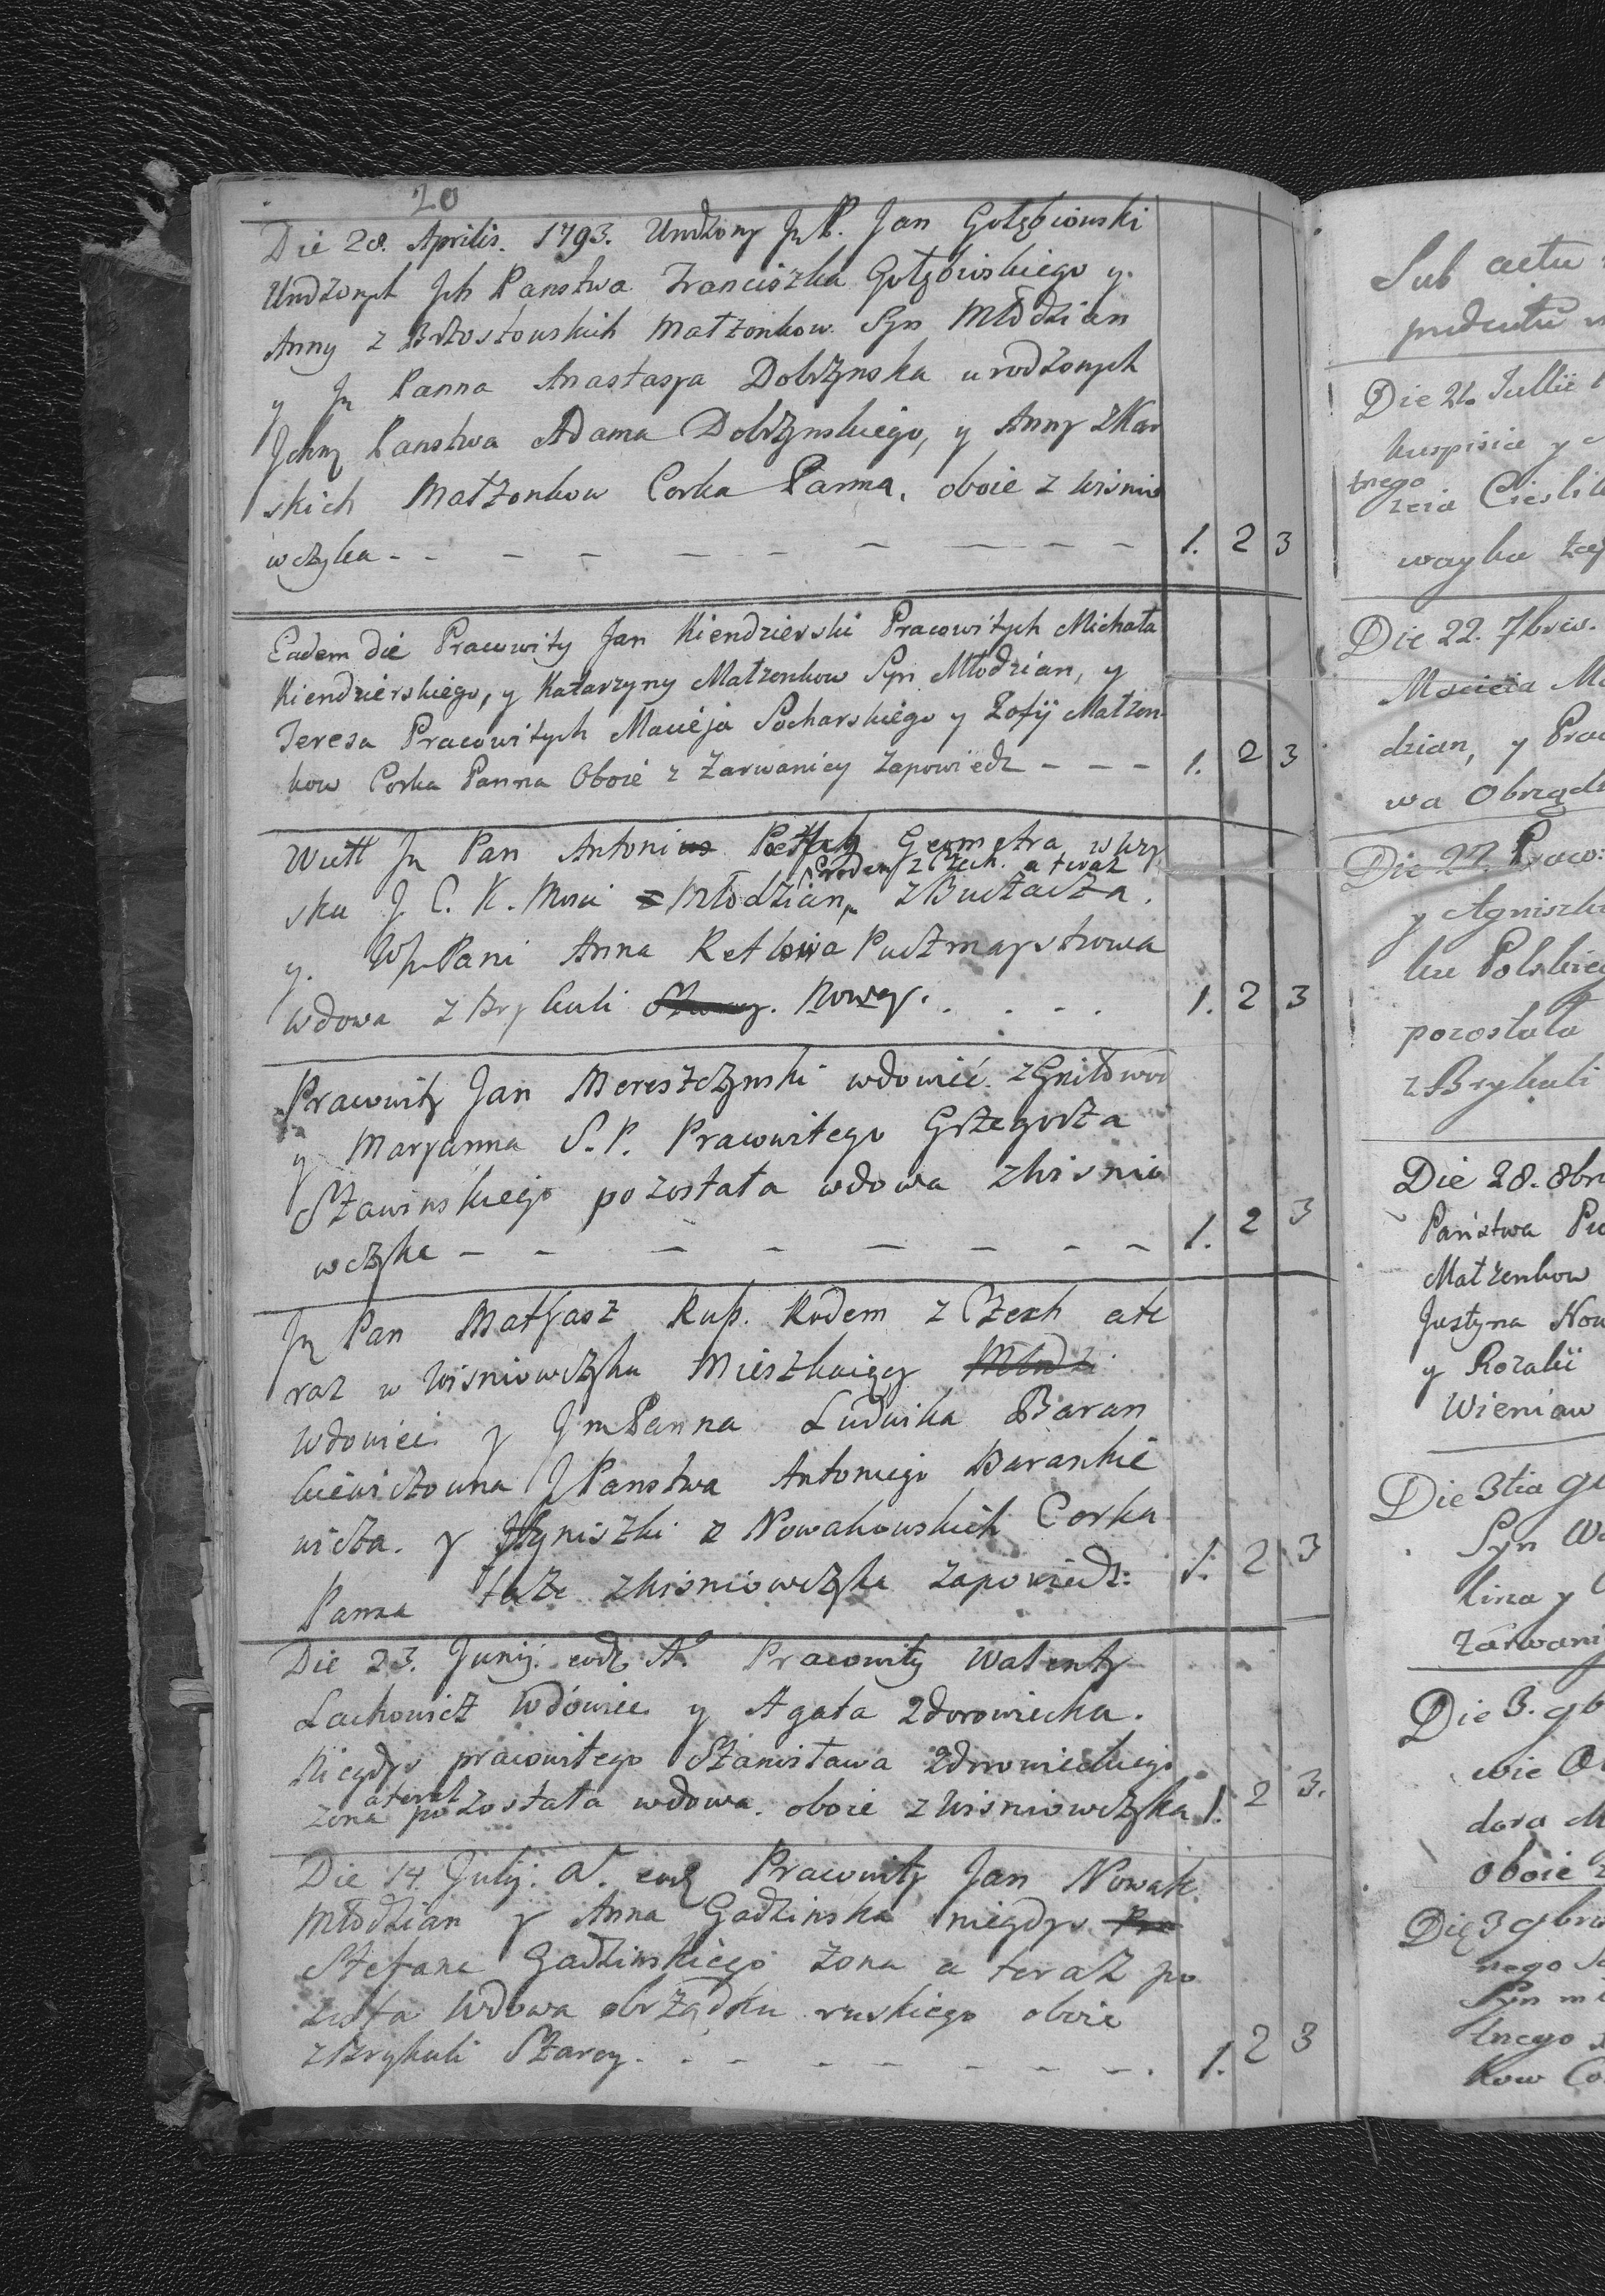 20
Die 28. Aprilis. 1793. Urodzony Jan Gołębiowski
Urodzonych Jch Panstwa Franciszka Gołębiowskiego y
Anny z Brzostowskich Małzonkow Syn Młodzian
y Panna Anastasya Dobrzynska urodzonych
Panstwa Adama Dobrzynskiego, y Anny z
skich Małzonkow Corka Panna, oboie z Wisnio
wczyka - - - - - - - - - - 1. 2 3
Eadem die Pracowity Jan Kiendzierski Pracowitych Michała
Kiendzierskiego, y Katarzyny Małzonkow Syn Młodzian, y
Teresa Pracowitych Macieja Socharskiego y Zofij Małzon
kow Corka Panna Oboie z Zarwanicy Zapowiedz - - - 1. 2 3
Pan Antoni Geometra w
Rodem z Czech. a teraz
sku J. C. K. Mosci Młodzian z Buczacza.
y Pani Anna Puczmaystrowa
Wdowa z Brykuli Nowey. . . . . 1. 2 3
Pracowity Jan Mereszczynski wdowiec z Gniłowod
y Maryanna S. P. Pracowitego Grzegorza
Sławinskiego pozostała wdowa z Wisnio
wczyka - - - - - - - - 1. 2 3
Pan Matyasz Kup. Rodem z Czech ate
raz w Wisniowczyku Mieszkaiący
Wdowiec y Panna Ludwika Baran
kiewiczowna Panstwa Antoniego Barankie
wicza. y Agniszki z Nowakowskich Corka
Panna taże z Wisniowczyka zapowiedz: 1. 2 3
Die 23. Junij. eod. A° Pracowity Walenty
Lachowicz Wdowiec y Agata Zdorowiecka.
Niegdys pracowitego Stanisława Zdrowieckiego
ateraz
zona pozostała wdowa. oboie z Wisniowczyka 1. 2 3.
Die 14. Julij. A°. eod Pracowity Jan Nowak.
Młodzian y Anna Gadzinska niegdys
Stefana Gadzinskiego zona a teraz po
zosta Wdowa obrządku ruskiego oboie
z Brykuli Starey. - - - - - - - . 1. 2 3
Sub actu
Die 21. Jullii
tnego
wayka
Die 22. 7bris.
dzian, y
wa Obrządk
Die 27. Pracow:
y Agniszki
ku Polskieg
pozostała
z Brykuli
Die 28. 8br
Państwa
Małzenkow
Justyna Now
y Rozalii
Wieniaw
Die 3tia
Syn
Zarwani
Die 3. 9b
wie
dora M
oboie z
Die 3 9br
nego
Syn
tnego
kow Co